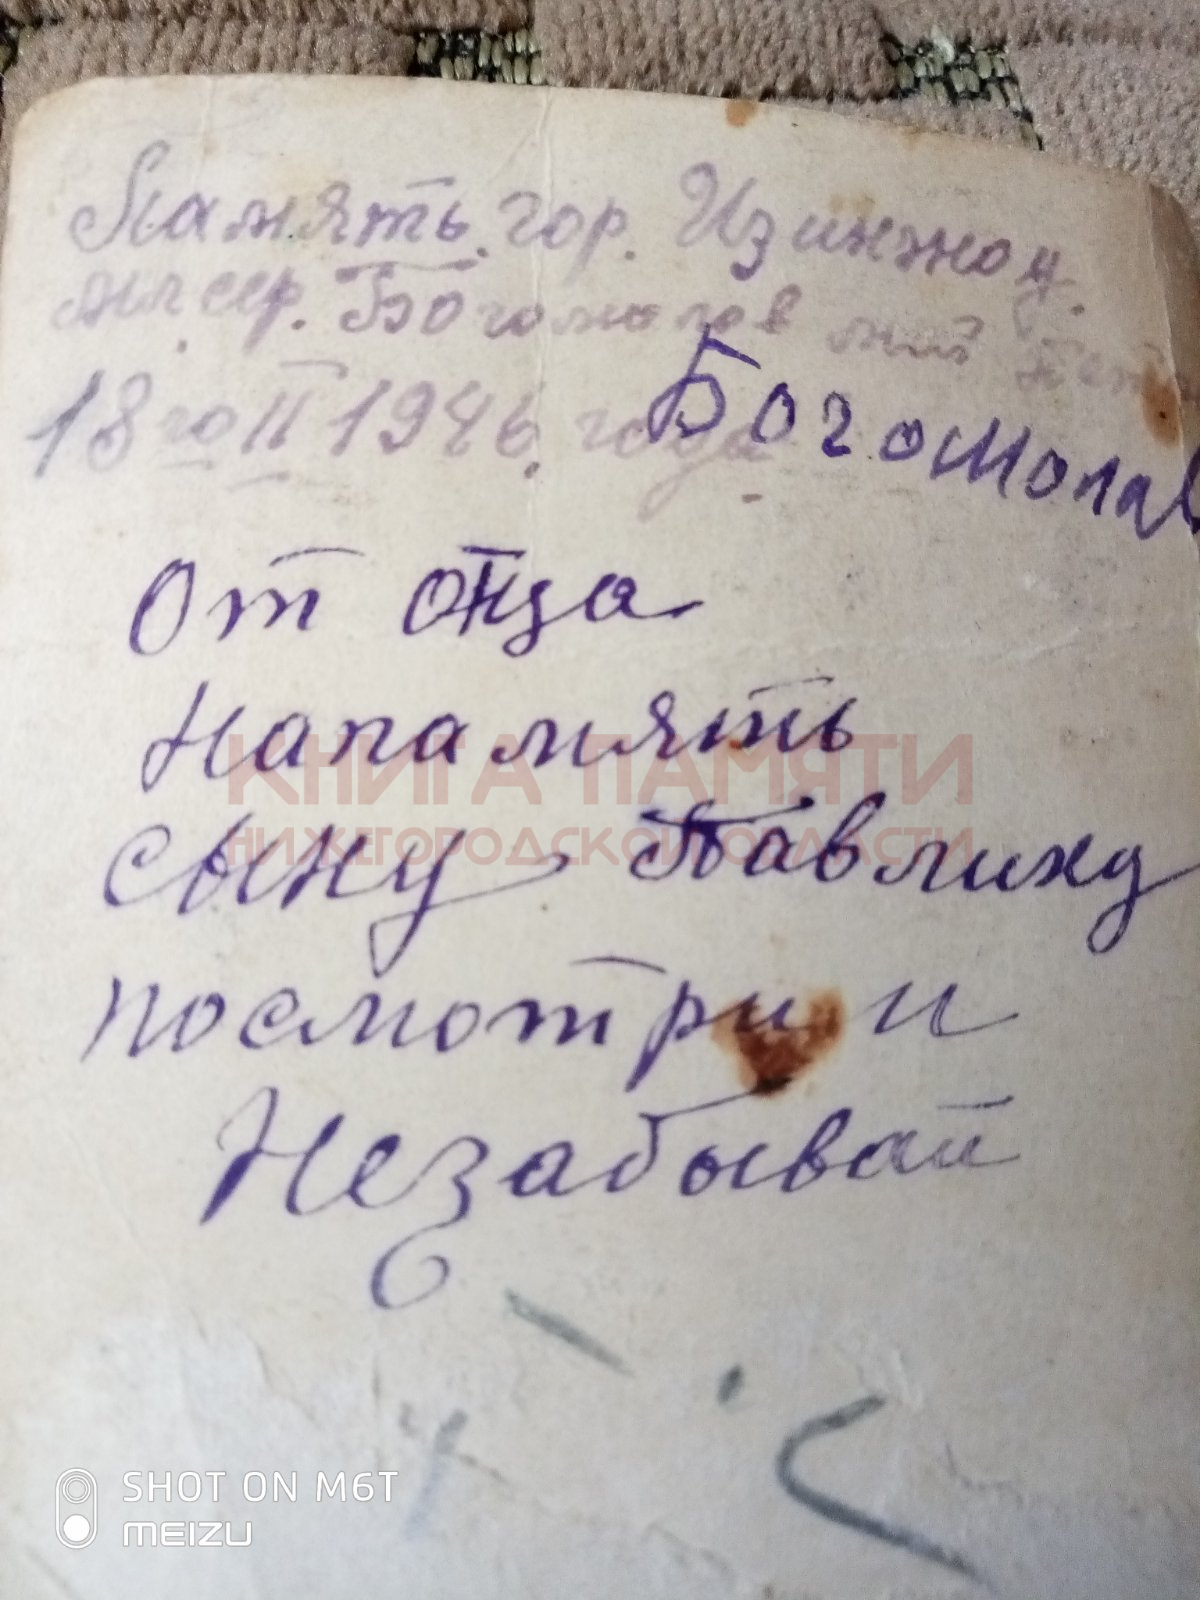 Память гор. Изинжоу
мл сер. Богомолов
18го II 1946 года
Богомолав
От отца
Напамять
сыну Павлику
посмотри и
Незабывай
КНИГА ПАМЯТИ
НИЖЕГОРОДСКОЙ ОБЛАСТИ
SHOT ON M6T
MEIZU